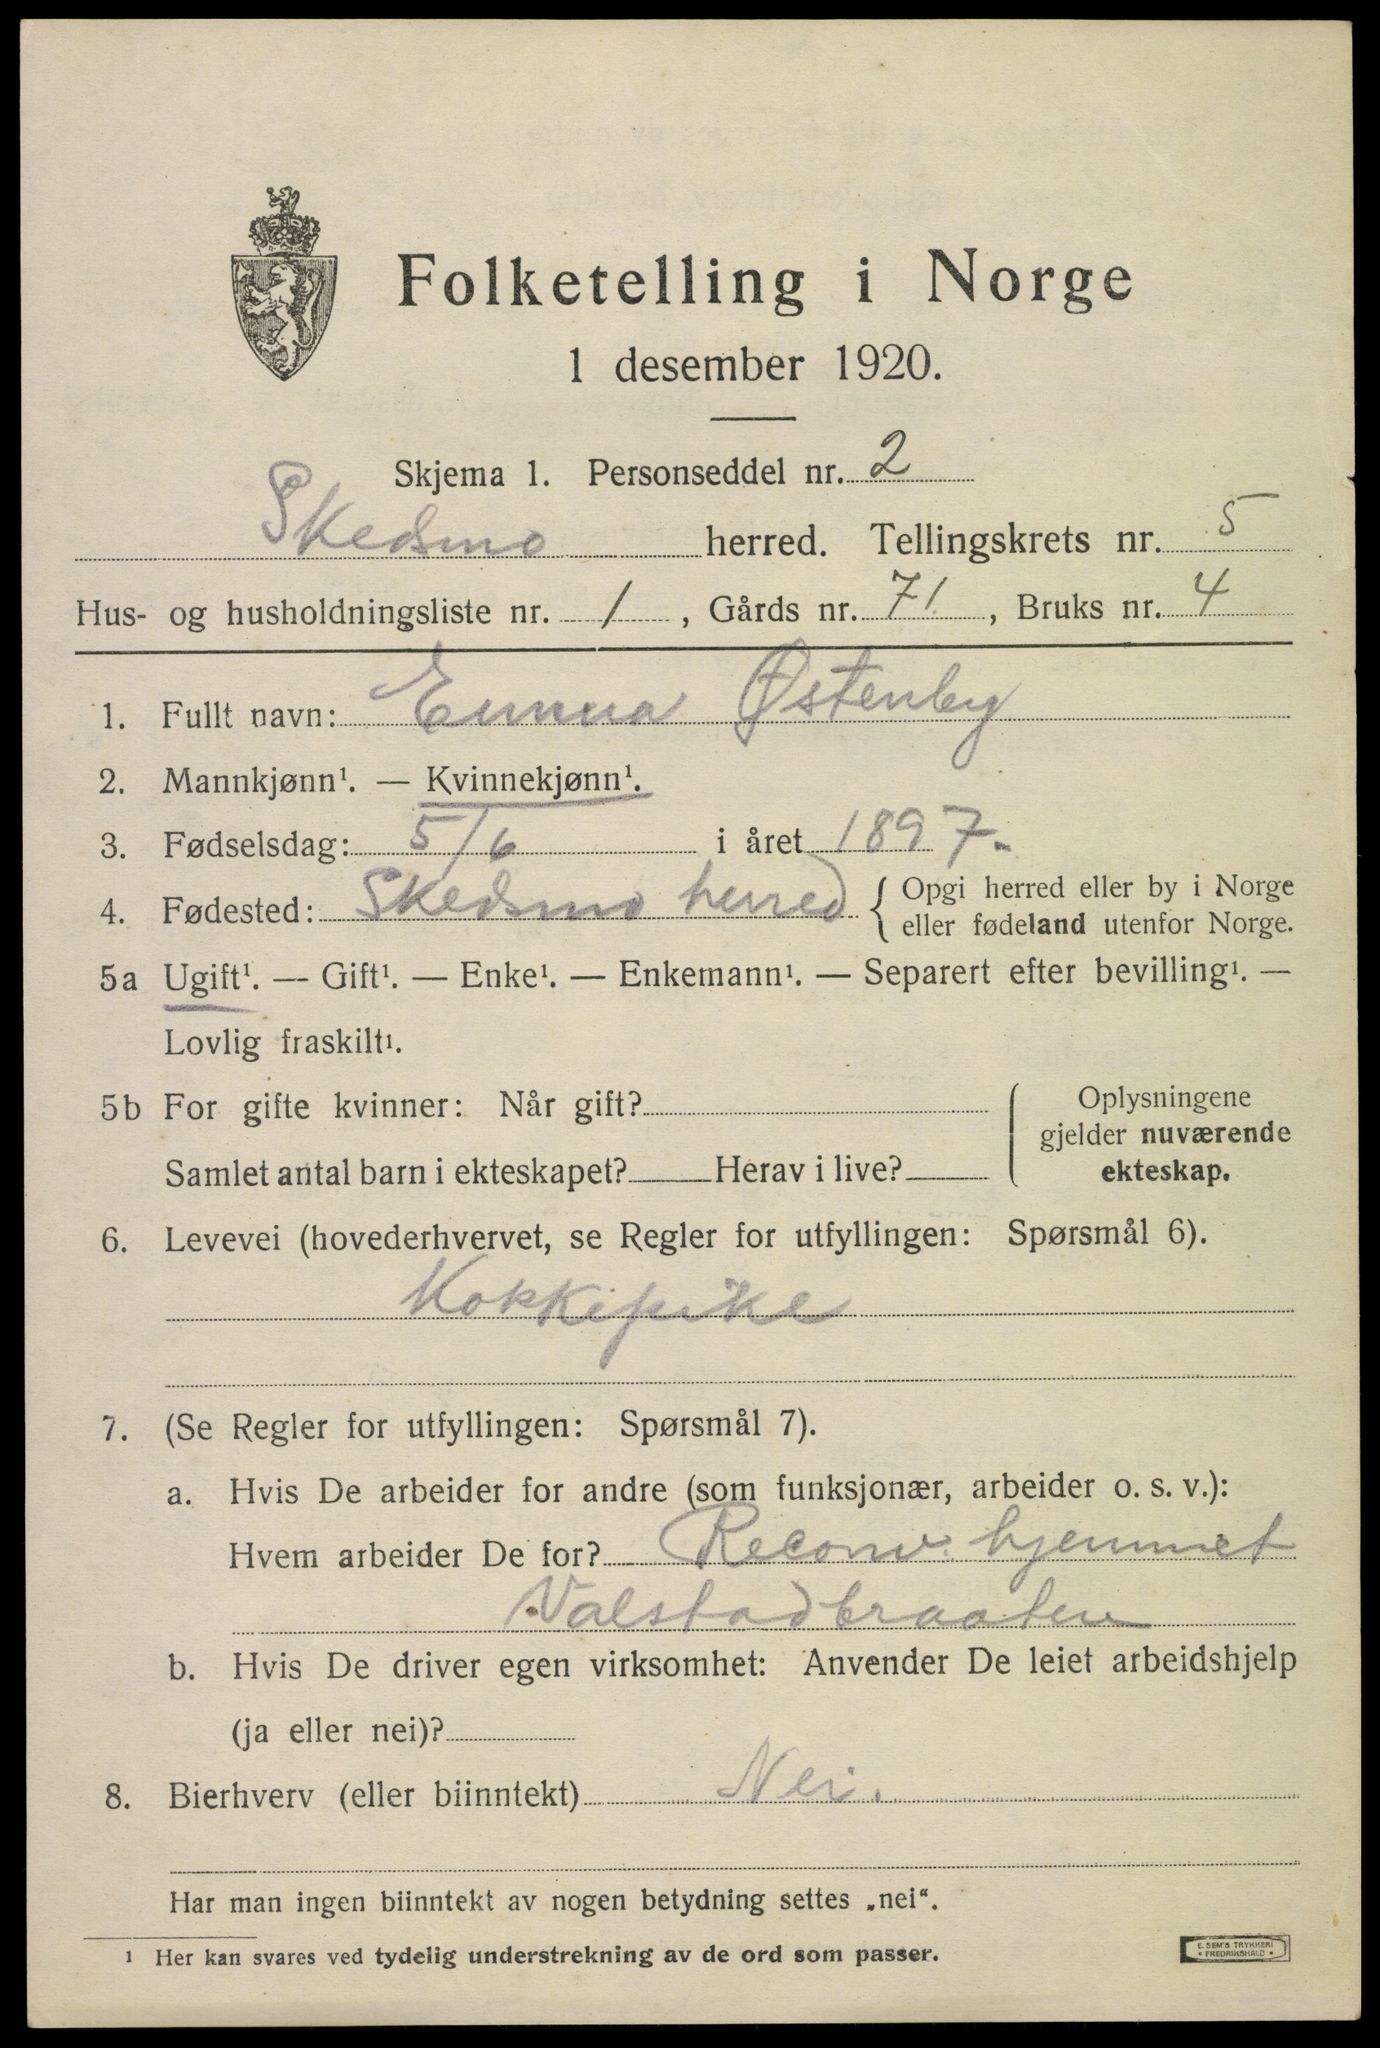 Folketelling i Norge
1 desember 1920.
Skjema 1. Personseddel nr. 2
Skedsmo herred. Tellingskrets nr. 5
Hus- og husholdningsliste nr. 1, Gårds nr. 71, Bruks nr. 4
1. Fullt navn: Emma Østenby
2. Mannkjønn¹. — Kvinnekjønn¹.
3. Fødselsdag: 5/6 i året 1897.
4. Fødested: Skedsmo herred { Opgi herred eller by i Norge
eller fødeland utenfor Norge.
5a Ugift¹. — Gift¹. — Enke¹. — Enkemann¹. — Separert efter bevilling¹. —
Lovlig fraskilt¹.
5b For gifte kvinner: Når gift?
Samlet antal barn i ekteskapet? Herav i live?
Oplysningene
gjelder nuværende
ekteskap.
6. Levevei (hovederhvervet, se Regler for utfyllingen: Spørsmål 6).
Kokkepike
7. (Se Regler for utfyllingen: Spørsmål 7).
a. Hvis De arbeider for andre (som funksjonær, arbeider o. s. v.):
Hvem arbeider De for? Reconv. hjemmet
Valstadbraaten
b. Hvis De driver egen virksomhet: Anvender De leiet arbeidshjelp
(ja eller nei)?
8. Bierhverv (eller biinntekt) Nei.
Har man ingen biinntekt av nogen betydning settes „nei“.
¹ Her kan svares ved tydelig understrekning av de ord som passer.
E. SEM'S TRYKKERI
• FREDRIKSHALD •